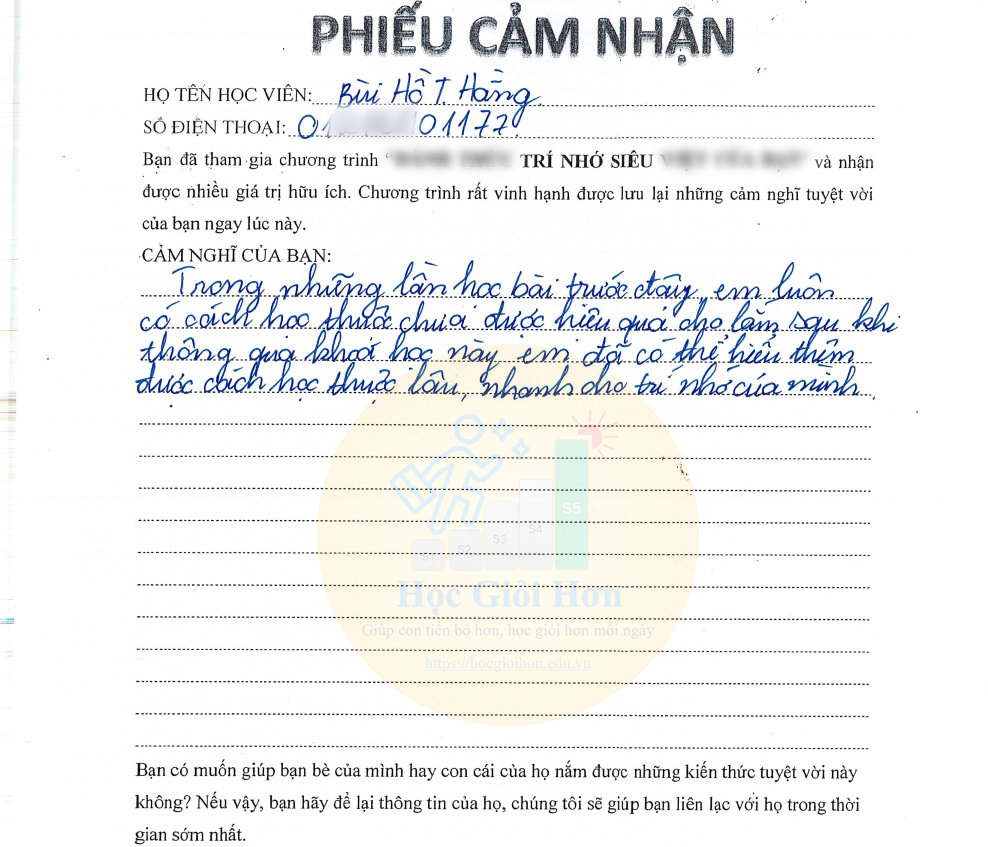 PHIẾU CẢM NHẬN
HỌ TÊN HỌC VIÊN: Bùi Hồ T. Hằng
SỐ ĐIỆN THOẠI: 01 01177
Bạn đã tham gia chương trình " TRÍ NHỚ SIÊU " và nhận
được nhiều giá trị hữu ích. Chương trình rất vinh hạnh được lưu lại những cảm nghĩ tuyệt vời
của bạn ngay lúc này.
CẢM NGHĨ CỦA BẠN:
Trong những lần học bài trước đây, em luôn
có cách học thuộc chưa được hiệu quả cho lắm sau khi
thông qua khoá học này em đã có thể hiểu thêm
được cách học thuộc lâu, nhanh cho trí nhớ của mình.
S1 S2 S3 S4 S5
Học Giỏi Hơn
Giúp con tiến bộ hơn, học giỏi hơn mỗi ngày
https://hocgioihon.edu.vn
Bạn có muốn giúp bạn bè của mình hay con cái của họ nắm được những kiến thức tuyệt vời này
không? Nếu vậy, bạn hãy để lại thông tin của họ, chúng tôi sẽ giúp bạn liên lạc với họ trong thời
gian sớm nhất.